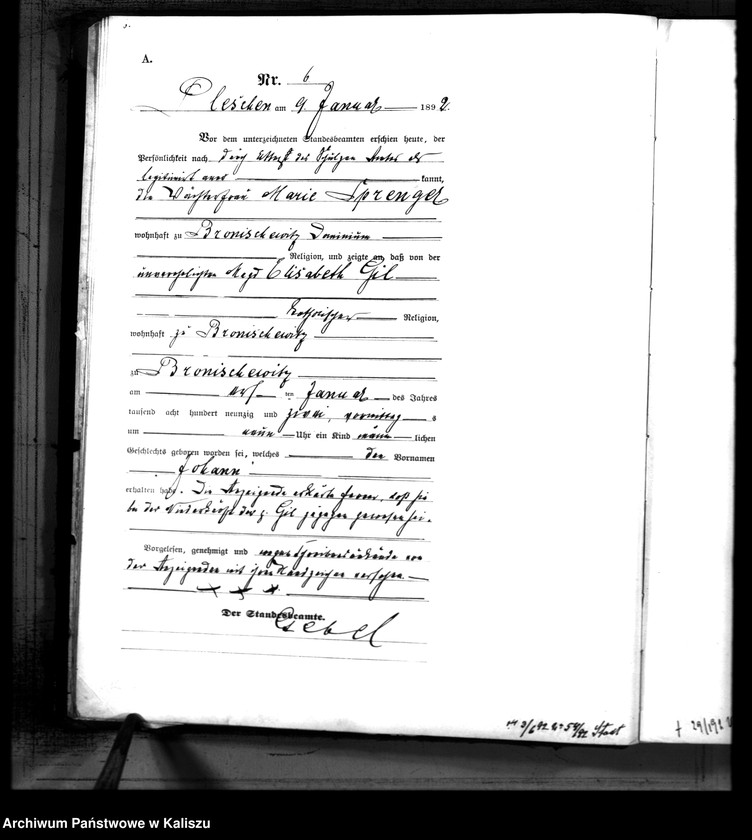 A.
Nr. 6
Pleschen am 9. Januar 1892.
Vor dem unterzeichneten Standesbeamten erschien heute, der
Persönlichkeit nach durch Attest des Schulzen Amtes
legitimirt kannt,
die Wächterfrau Marie Sprenger
wohnhaft zu Bronischewitz Dominium
Religion, und zeigte an, daß von der
unverehelichten Magd Elisabeth Gil
katholischer Religion,
wohnhaft zu Bronischewitz
zu Bronischewitz
am ten Januar des Jahres
tausend acht hundert neunzig und zwei, vormittag s
um neun Uhr ein Kind männ lichen
Geschlechts geboren worden sei, welches den Vornamen
Johann
erhalten habe. Die Anzeigende erklärte ferner, daß sie
bei der Niederkunft der p. Gil zugegen gewesen sei.
Vorgelesen, genehmigt und wegen Schreibensunkunde von
der Anzeigenden mit ihrem Handzeichen versehen
+ + +
Der Standesbeamte.
Gebel
Stadt
Archiwum Państwowe w Kaliszu